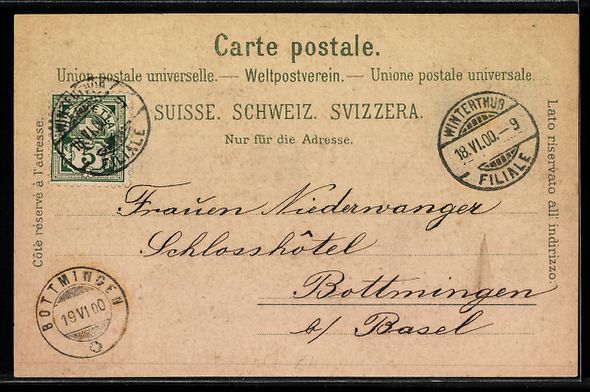 Carte postale.
Union postale universelle. — Weltpostverein. — Unione postale universale.
SUISSE. SCHWEIZ. SVIZZERA.
Nur für die Adresse.
Côté réservé à l'adresse.
Lato riservato all'indirizzo.
WINTERTHUR
18.VI.00.–9
FILIALE
FILIALE
5
Frauen Niederwanger
Schlosshôtel
Bottmingen
b/ Basel
BOTTMINGEN
19 VI 00